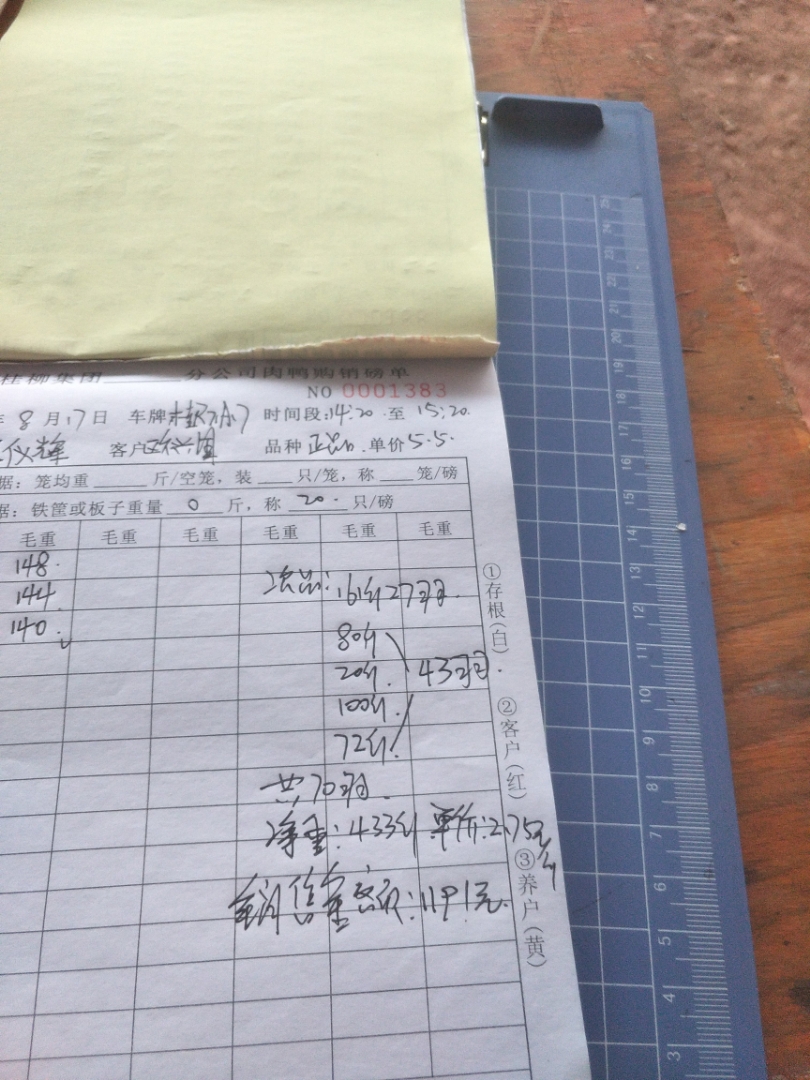 桂柳集团______分公司肉鸭购销磅单
NO 0001383
8月17日 车牌 时间段:14:20 至 15:20.
仪辉 客户 品种 正品 单价5.5.
据:笼均重____斤/空笼,装___只/笼,称___笼/磅
据:铁筐或板子重量 0 斤,称 20 只/磅
毛重 毛重 毛重 毛重 毛重 毛重
148.
144. 次品: 161斤27羽.
140. 80斤
20斤. 43羽.
100斤.
72斤
共70羽.
净重:433斤 单价:2.75元/斤
销售金额:1191元.
①存根(白)
②客户(红)
③养户(黄)
25
24
23
22
21
20
19
18
17
16
15
14
13
12
11
10
9
8
7
6
5
4
3